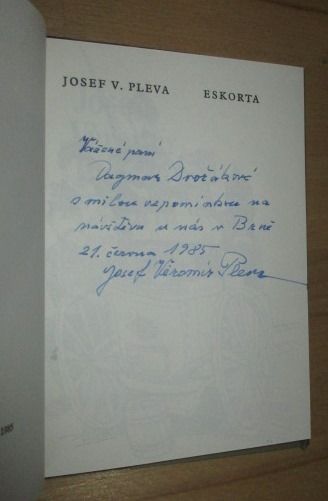 JOSEF V. PLEVA ESKORTA
Vážené paní
Dagmar Dvořákové
s milou vzpomínkou na
návštěvu u nás v Brně
21. června 1985
Josef Věromír Pleva
1985